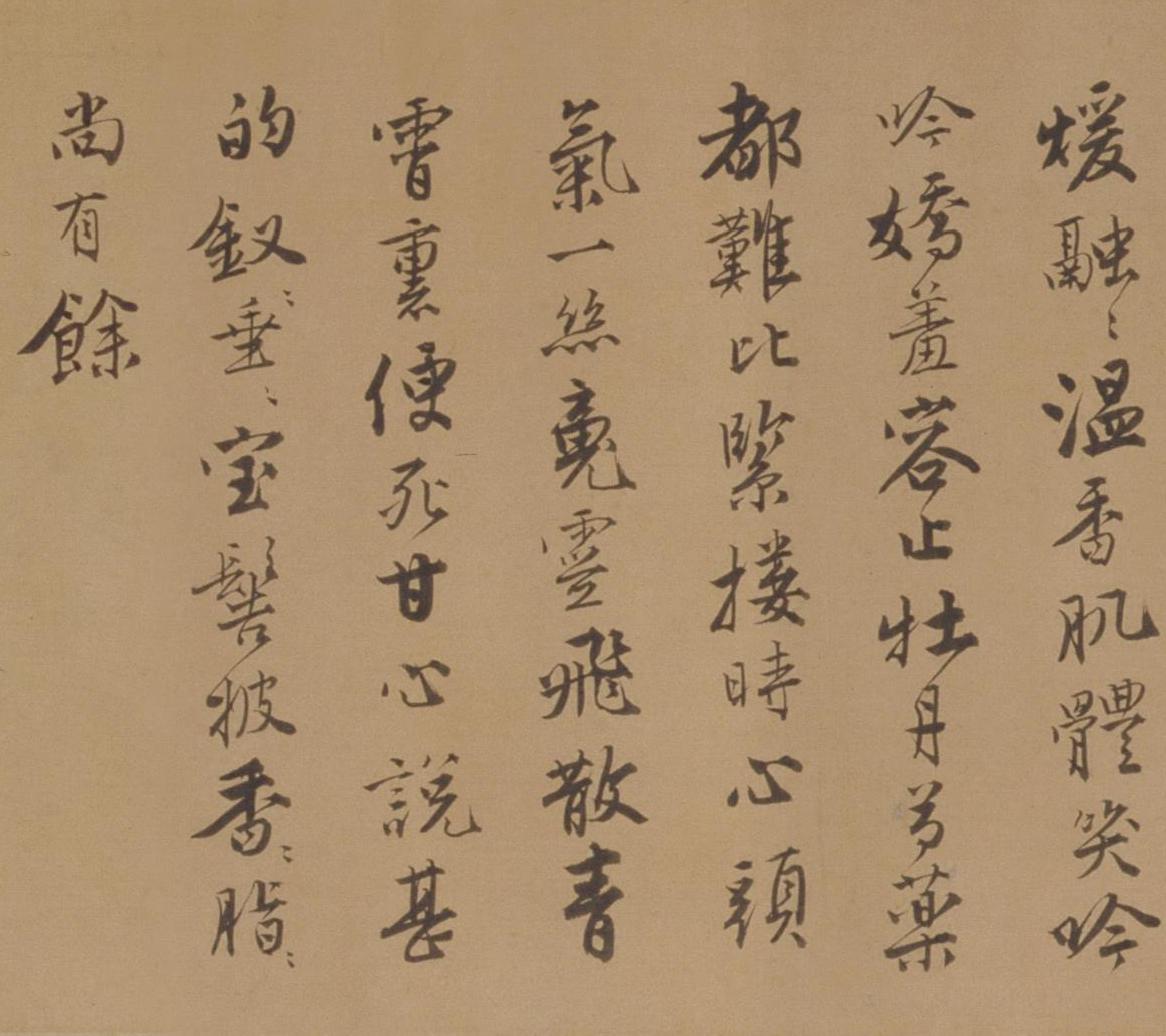 煖融〻溫香肌體笑吟
吟嬌羞容止牡丹芍藥
都難比緊摟時心頭
氣一絲䰟靈飛散青
霄裏便死甘心說甚
的釵〻垂〻宝髻披香〻脂〻
尚有餘